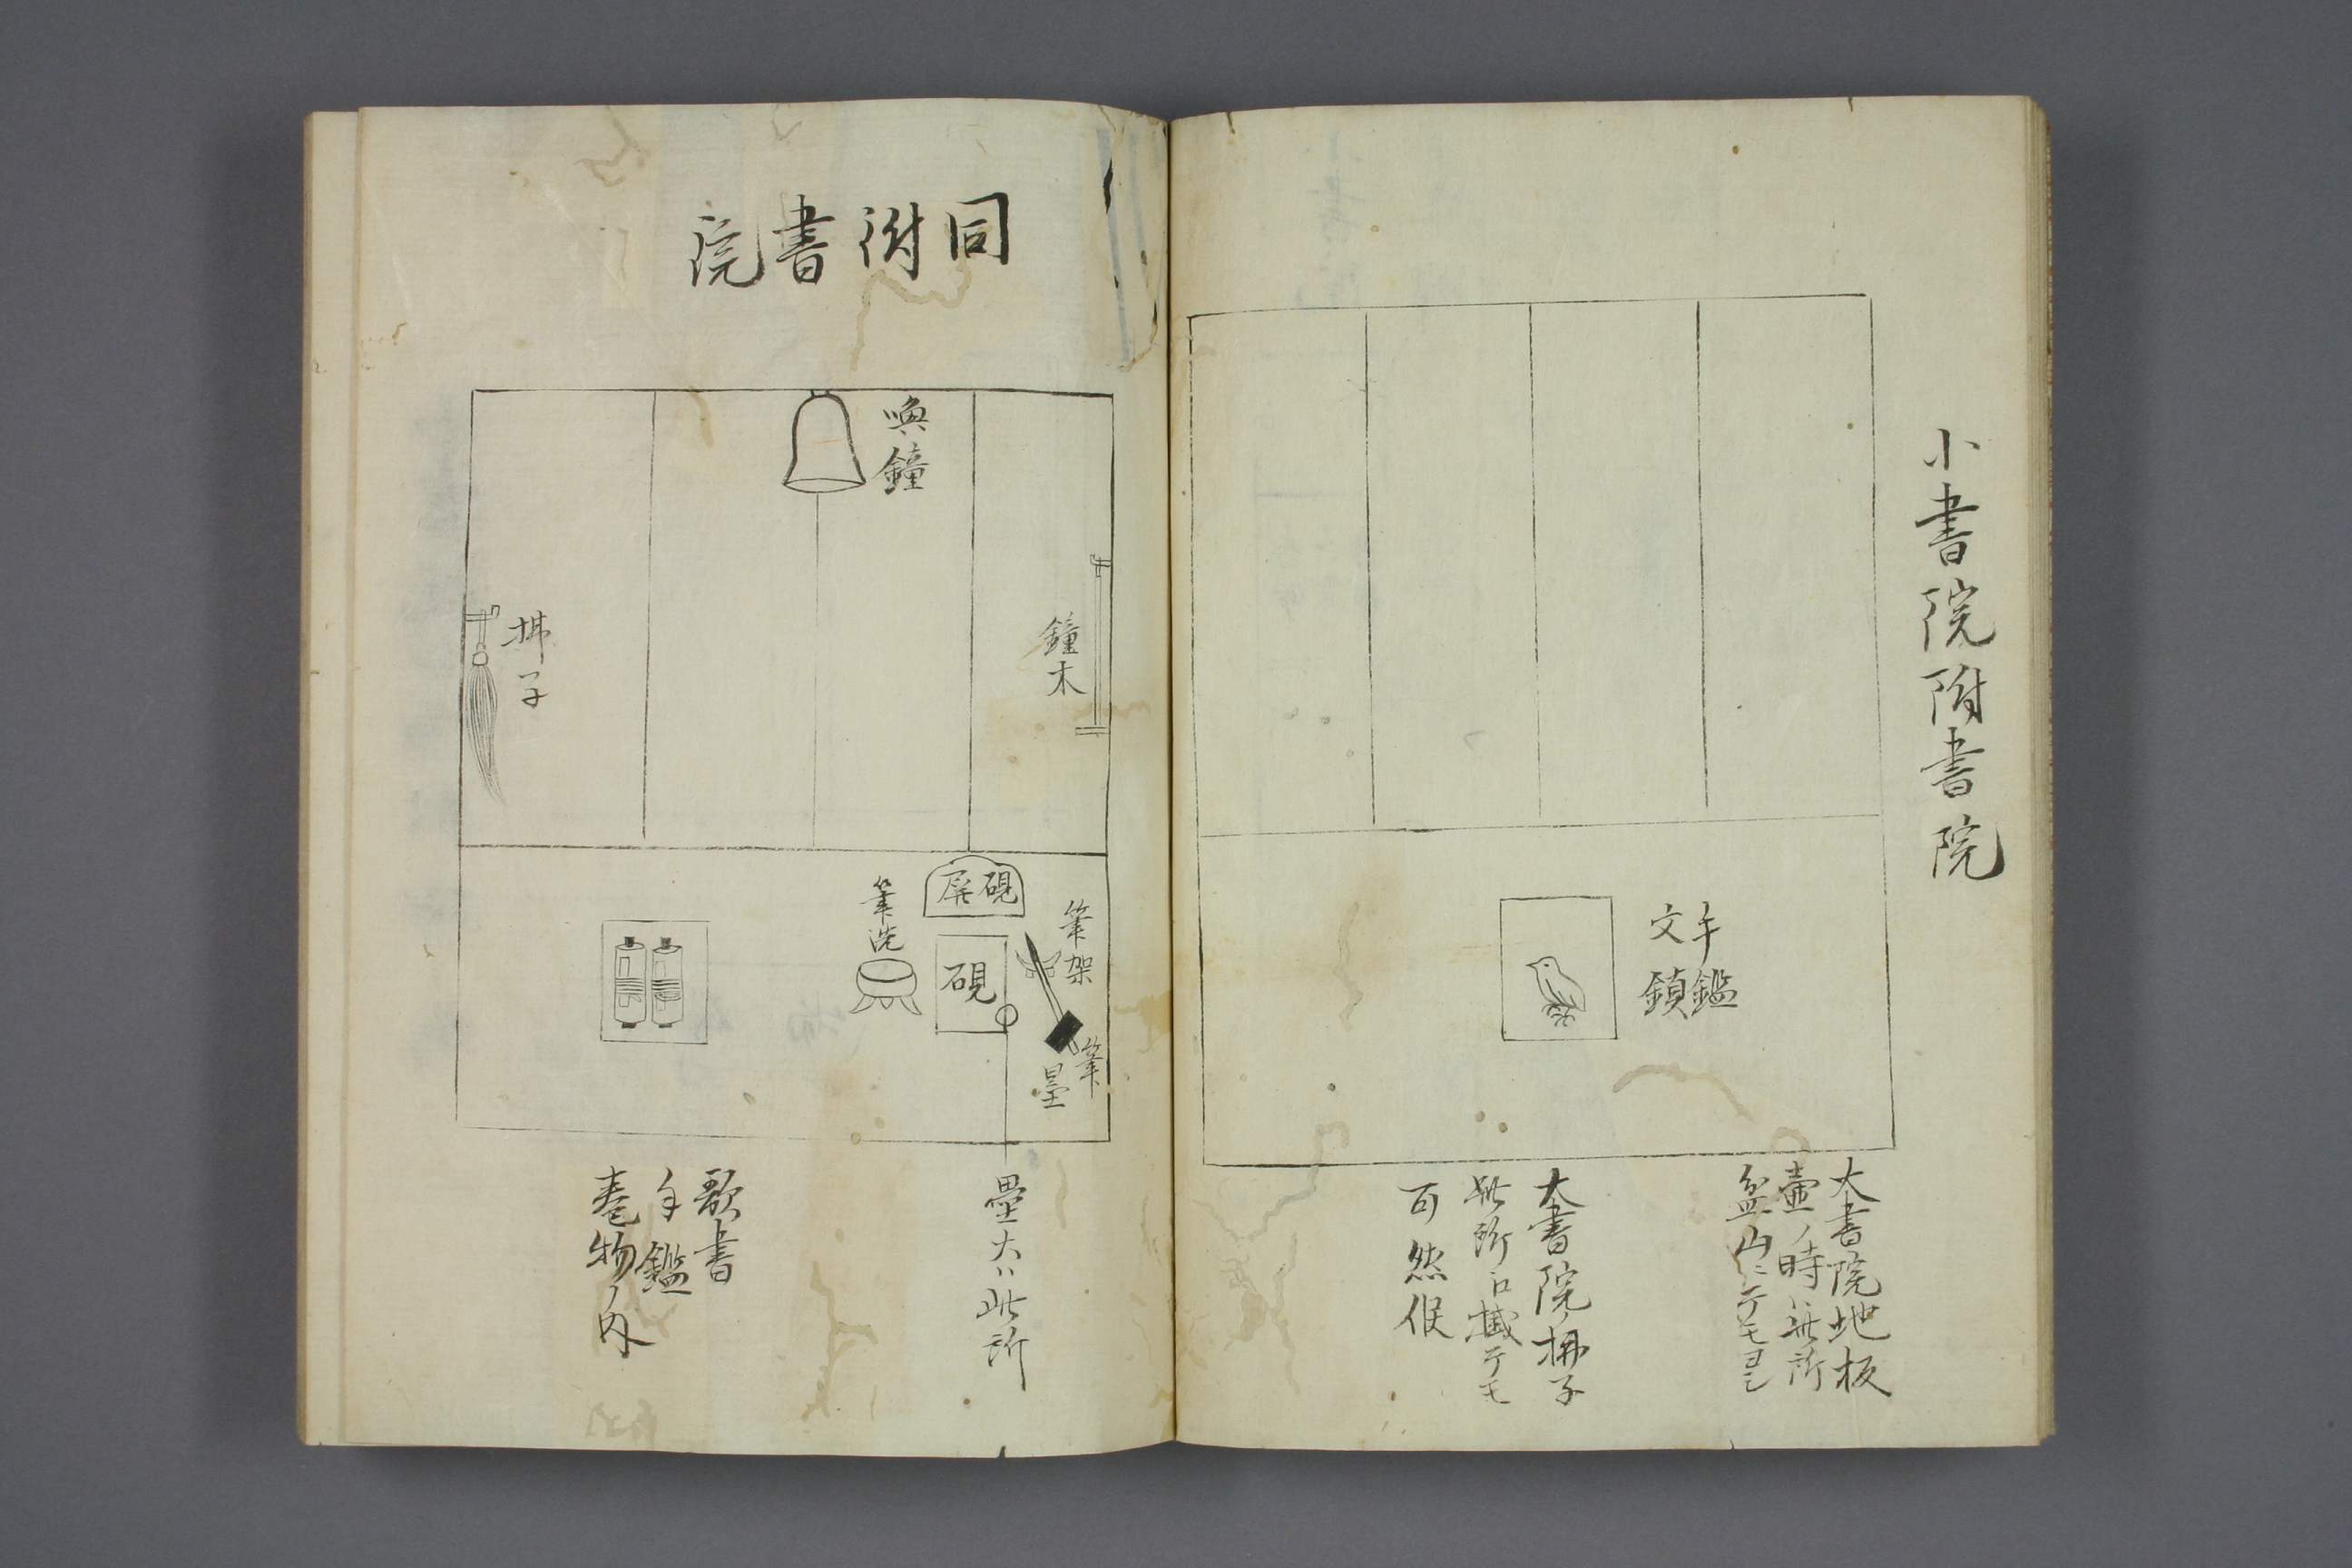 小書院附書院
手鑑
文鎮
大書院地板
壷ノ時ハ此所
盆山ニテモヨシ
大書院ノ拂子
此所ニ掛テモ
可然候
同附書院
喚鐘
鐘木
拂子
硯屏
硯
筆架
筆
墨
筆洗
墨大ハ此所
歌書
手鑑
巻物ノ内